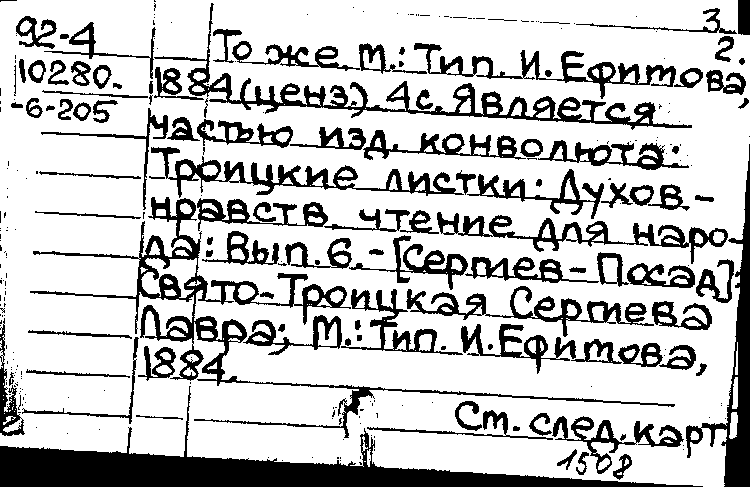 3.
2.
92-4
10280.
-6-205
То же. М.: Тип. И. Ефимова,
1884(ценз.). 4с. Является
частью изд. конволюта:
Троицкие листки: Духов.-
нравств. чтение для наро-
да: Вып. 6. - [Сергиев-Посад]:
Свято-Троицкая Сергиева
Лавра; М.: Тип. И. Ефимова,
1884.
См. след. карт.
1508